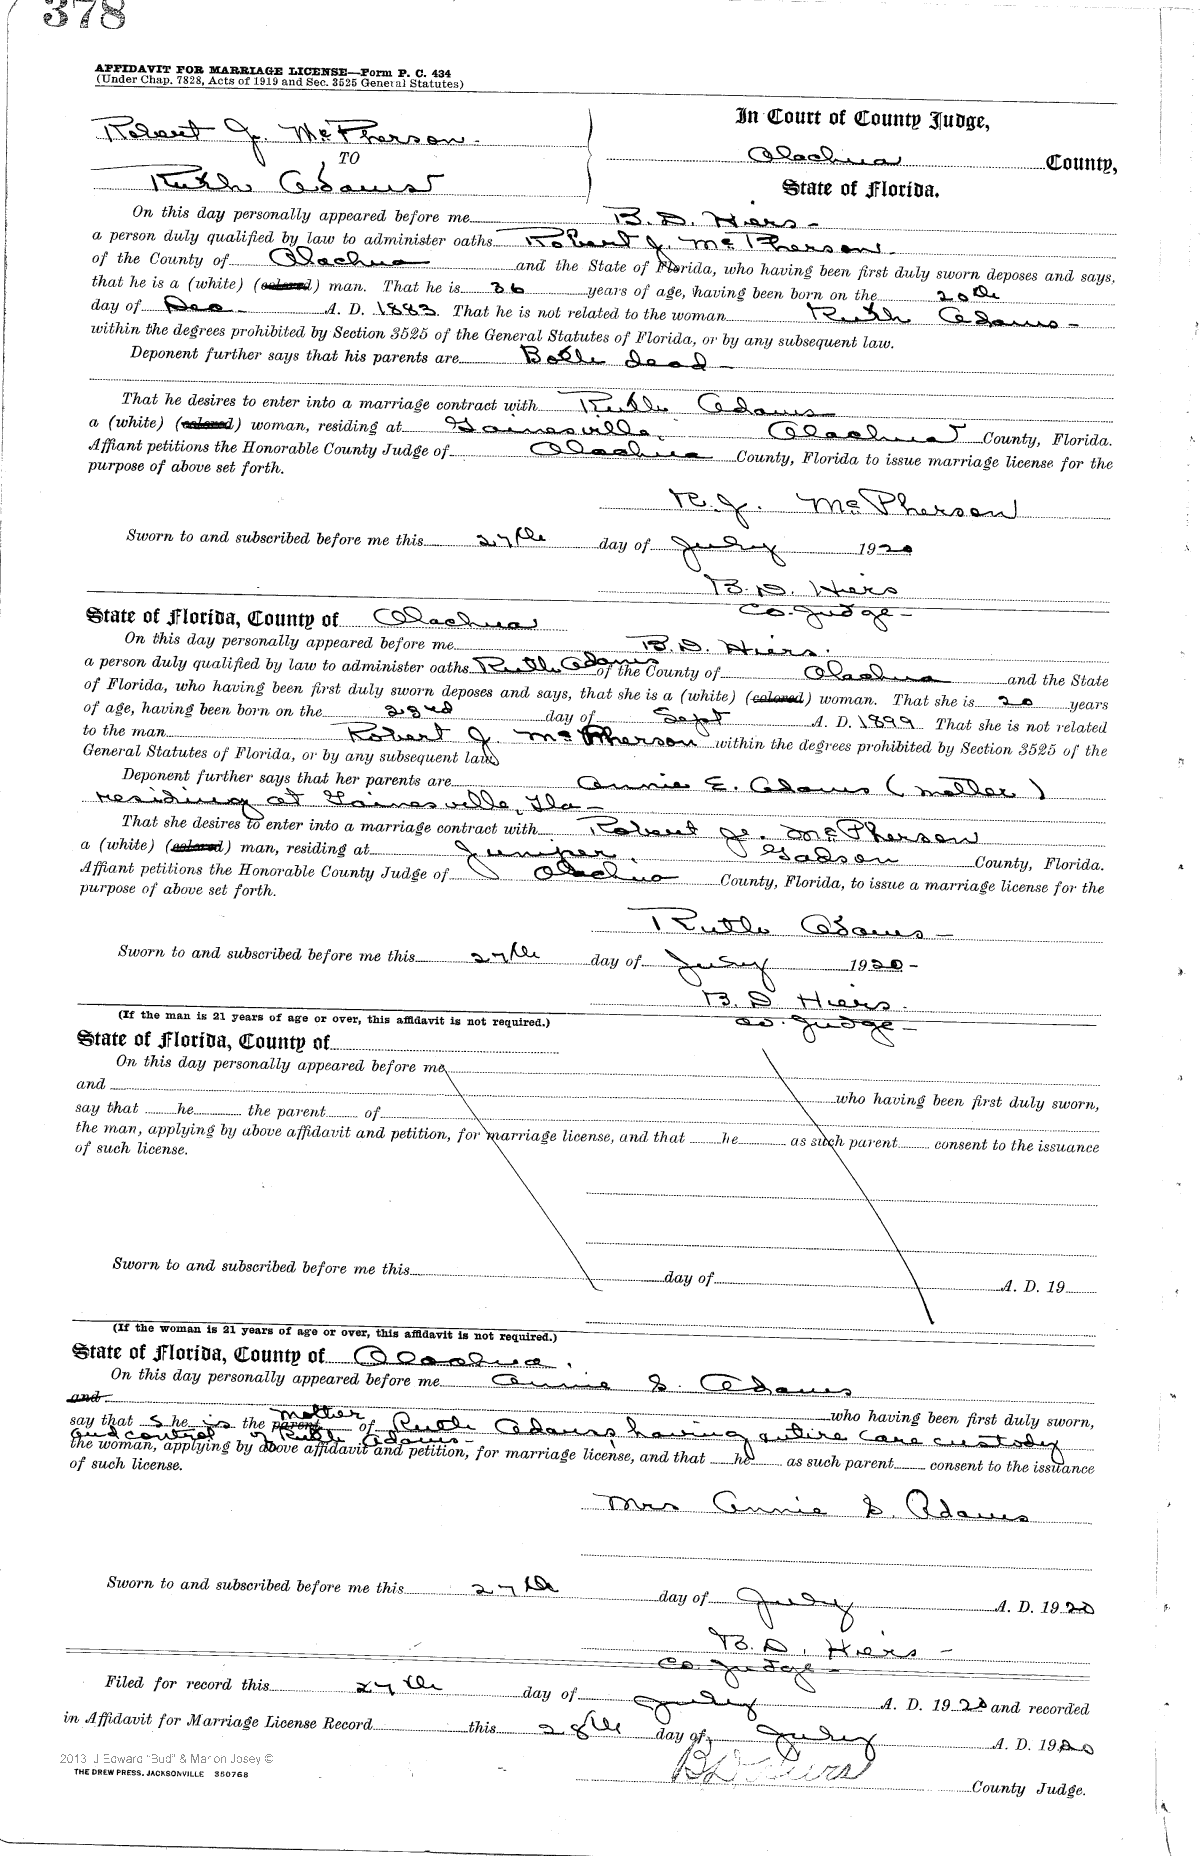 378
AFFIDAVIT FOR MARRIAGE LICENSE—Form P. C. 434
(Under Chap. 7828, Acts of 1919 and Sec. 3525 General Statutes)
Robert J. McPherson
TO
Ruth Adams
In Court of County Judge,
Alachua County,
State of Florida.
On this day personally appeared before me B. D. Hiers
a person duly qualified by law to administer oaths Robert J. McPherson
of the County of Alachua and the State of Florida, who having been first duly sworn deposes and says,
that he is a (white) (colored) man. That he is 36 years of age, having been born on the 20th
day of Dec A. D. 1883. That he is not related to the woman Ruth Adams
within the degrees prohibited by Section 3525 of the General Statutes of Florida, or by any subsequent law.
Deponent further says that his parents are Both dead
That he desires to enter into a marriage contract with Ruth Adams
a (white) (colored) woman, residing at Gainesville, Alachua County, Florida.
Affiant petitions the Honorable County Judge of Alachua County, Florida to issue marriage license for the
purpose of above set forth.
R. J. McPherson
Sworn to and subscribed before me this 27th day of July 1920
B. D. Hiers
Co. Judge
State of Florida, County of Alachua
On this day personally appeared before me B. D. Hiers.
a person duly qualified by law to administer oaths Ruth Adams of the County of Alachua and the State
of Florida, who having been first duly sworn deposes and says, that she is a (white) (colored) woman. That she is 20 years
of age, having been born on the 23rd day of Sept A. D. 1899. That she is not related
to the man Robert J. McPherson within the degrees prohibited by Section 3525 of the
General Statutes of Florida, or by any subsequent law
Deponent further says that her parents are Annie E. Adams (mother)
residing at Gainesville, Fla
That she desires to enter into a marriage contract with Robert J. McPherson
a (white) (colored) man, residing at Juniper, Gadson County, Florida.
Affiant petitions the Honorable County Judge of Alachua County, Florida, to issue a marriage license for the
purpose of above set forth.
Ruth Adams
Sworn to and subscribed before me this 27th day of July 1920
B. D Hiers.
Co. Judge
(If the man is 21 years of age or over, this affidavit is not required.)
State of Florida, County of
On this day personally appeared before me
and who having been first duly sworn,
say that he the parent of
the man, applying by above affidavit and petition, for marriage license, and that he as such parent consent to the issuance
of such license.
Sworn to and subscribed before me this day of A. D. 19
(If the woman is 21 years of age or over, this affidavit is not required.)
State of Florida, County of Alachua.
On this day personally appeared before me Annie E. Adams
and who having been first duly sworn,
say that She is the parent mother of Ruth Adams, having entire care custody
and control of Ruth Adams
the woman, applying by above affidavit and petition, for marriage license, and that he as such parent consent to the issuance
of such license.
Mrs Annie E. Adams
Sworn to and subscribed before me this 27th day of July A. D. 1920
B. D. Hiers
Co. Judge
Filed for record this 27th day of July A. D. 1920 and recorded
in Affidavit for Marriage License Record this 28th day of July A. D. 1920
B D Hiers County Judge.
2013 J Edward "Bud" & Marion Josey ©
THE DREW PRESS, JACKSONVILLE 350768